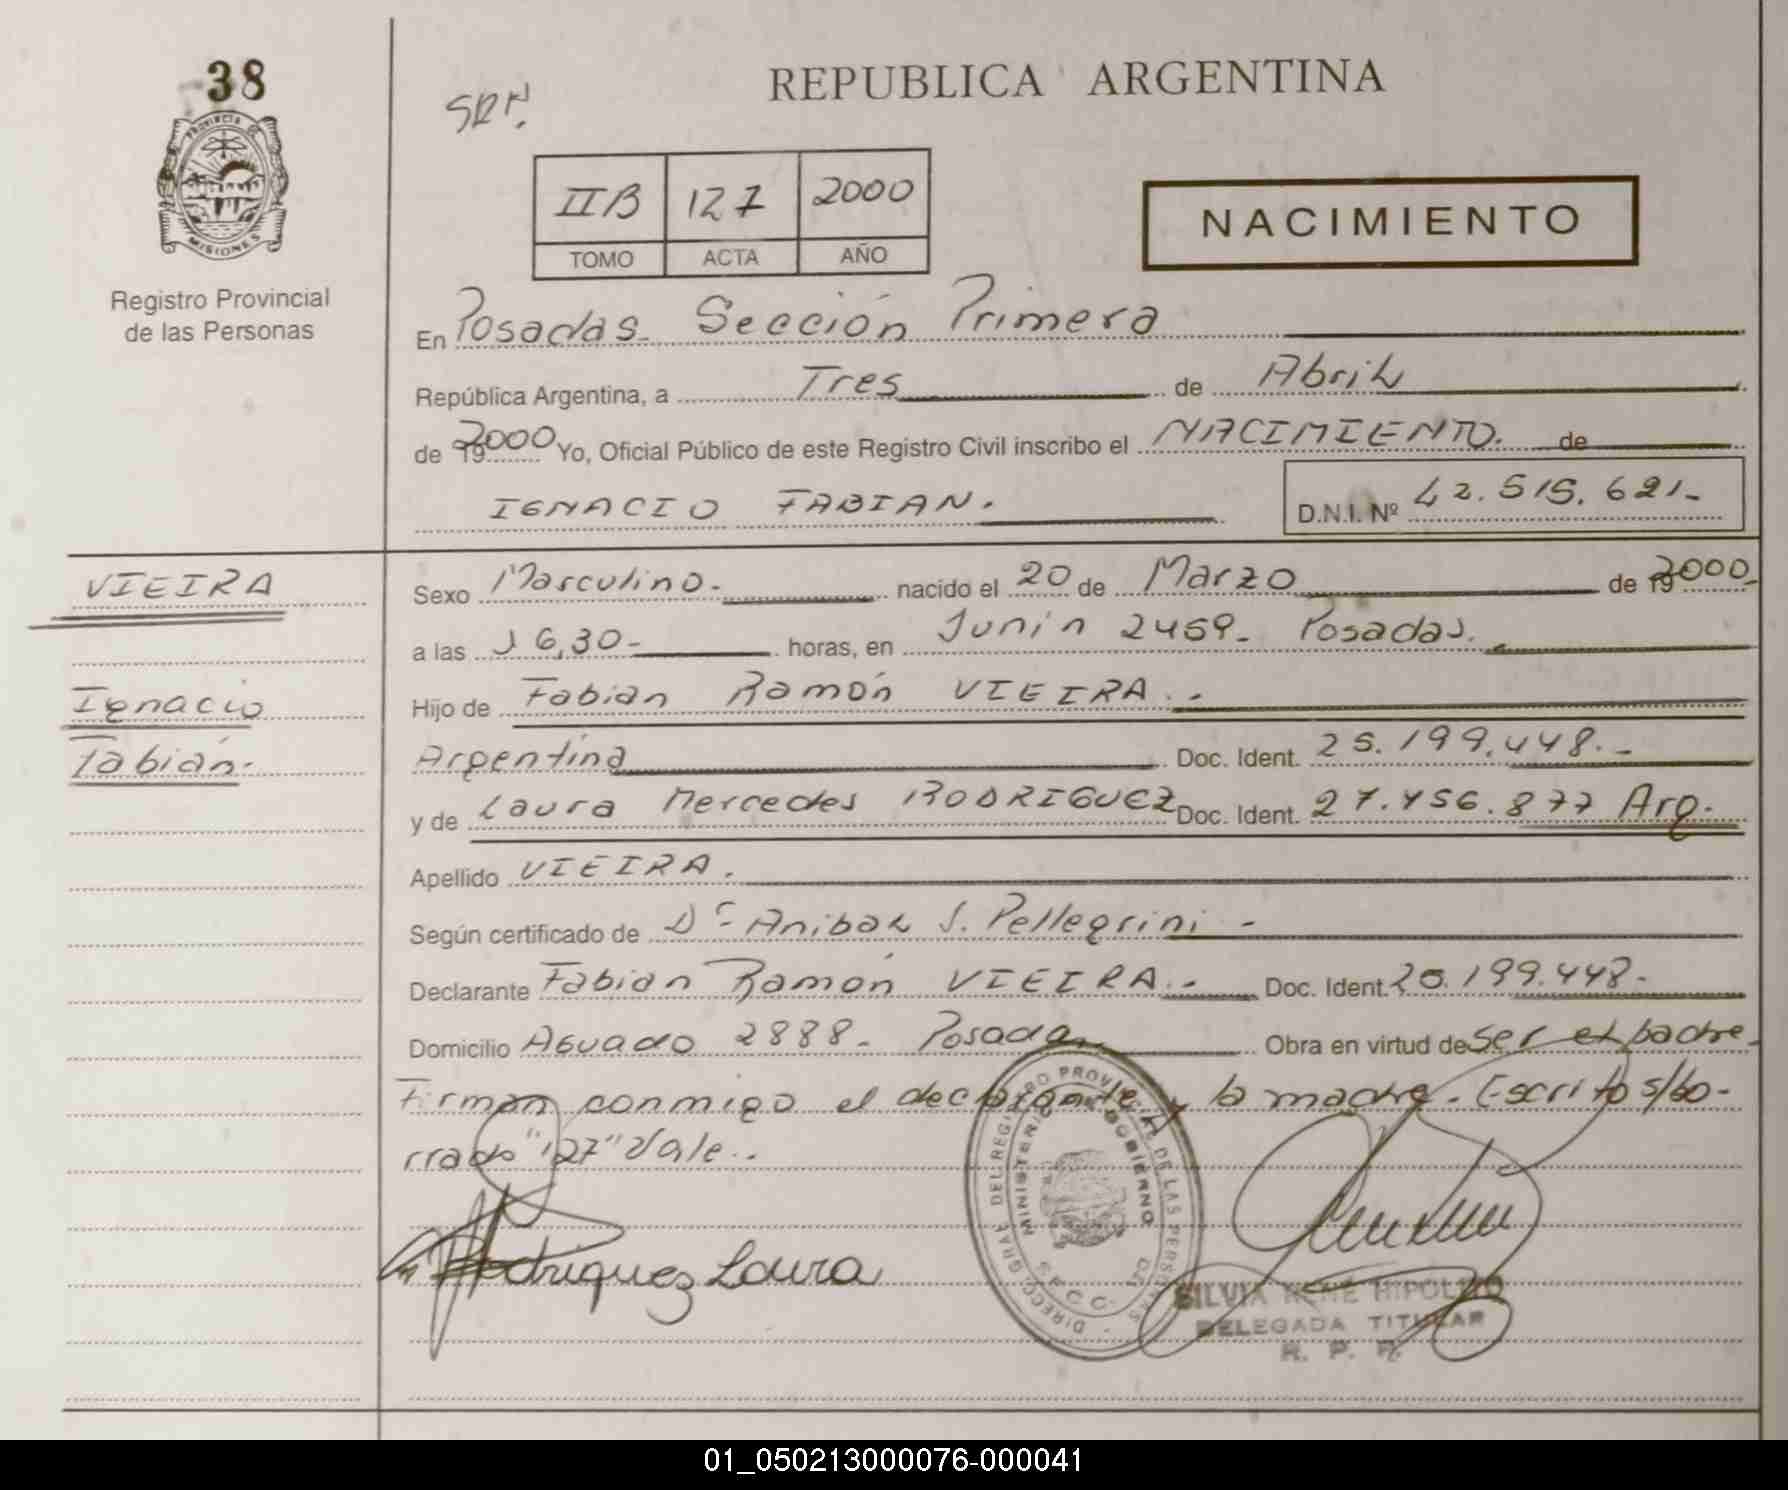 38
PROVINCIA DE
MISIONES
Registro Provincial
de las Personas
REPUBLICA ARGENTINA
IIB 127 2000
TOMO ACTA AÑO
NACIMIENTO
En Posadas. Sección Primera
República Argentina, a Tres de Abril
de 2000 Yo, Oficial Público de este Registro Civil inscribo el NACIMIENTO. de
IGNACIO FABIAN.
D.N.I. Nº 42.515.621.-
VIEIRA
Ignacio
Fabián.
Sexo Masculino. nacido el 20 de Marzo de 2000.
a las 16,30- horas, en Junin 2459. Posadas.
Hijo de Fabian Ramón VIEIRA.-
Argentina Doc. Ident. 25.199.448.-
y de Laura Mercedes RODRIGUEZ Doc. Ident. 27.456.877 Arg.
Apellido VIEIRA.
Según certificado de Dr- Anibal S. Pellegrini -
Declarante Fabian Ramón VIEIRA.- Doc. Ident. 20.199.448.
Domicilio Aguado 2888. Posadas. Obra en virtud de ser el padre.
Firman conmigo el declarante y la madre. Escrito s/bo-
rrado "127" Vale..
Rodriguez Laura
DIRECC. GRAL. DEL REGISTRO PROVINCIAL DE LAS PERSONAS
MINISTERIO DE GOBIERNO
SILVIA RENÉ HIPOLITO
DELEGADA TITULAR
R. P. P.
01_050213000076-000041